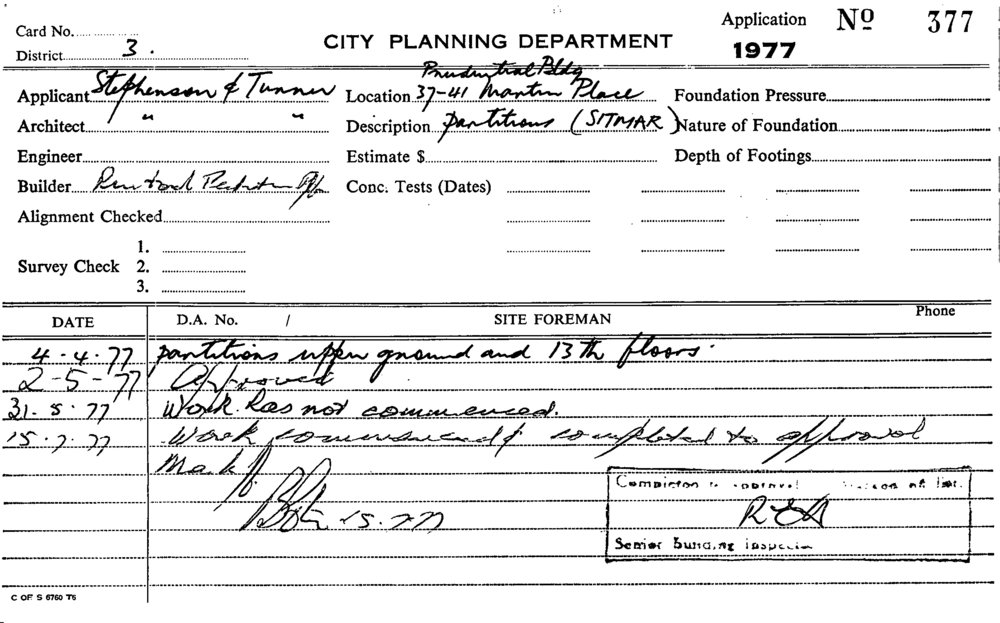 Card No.
District 3.
CITY PLANNING DEPARTMENT
Application Nº 377
1977
Applicant Stephenson & Turner
Architect " "
Engineer
Builder
Alignment Checked
Survey Check 1.
2.
3.
Prudential Bldg
Location 37-41 Martin Place
Description partitions (SITMAR)
Estimate $
Conc. Tests (Dates)
Foundation Pressure
Nature of Foundation
Depth of Footings
DATE D.A. No. / SITE FOREMAN Phone
4.4.77 partitions upper ground and 13th floors.
2-5-77 Approved
31.5.77 Work has not commenced.
15.7.77 Work commenced & completed to approval
Mark
15.7.77
Senior Building Inspector
C OF S 6760 T6